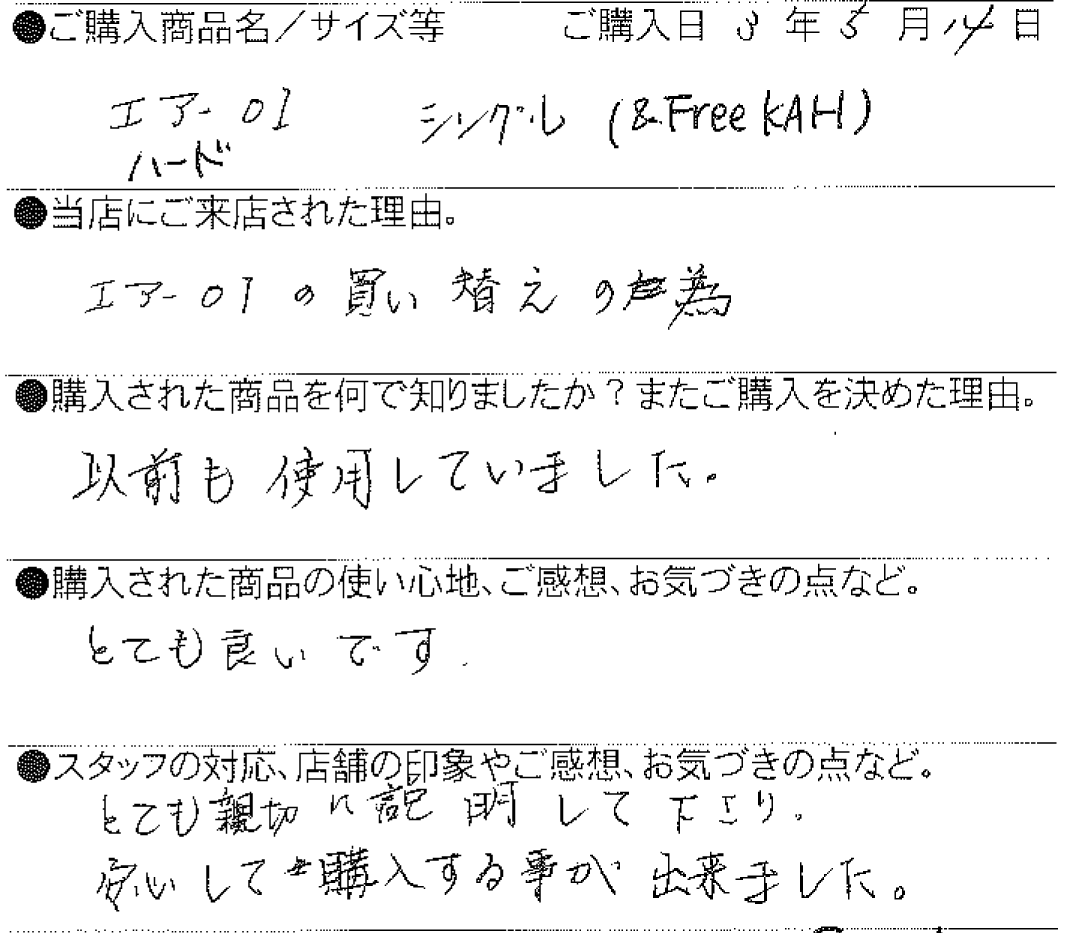 ●ご購入商品名／サイズ等　ご購入日 3 年 5 月 14 日
エアー01　シングル (&Free KAH)
ハード
●当店にご来店された理由。
エアー01の買い替えの為
●購入された商品を何で知りましたか？またご購入を決めた理由。
以前も使用していました。
●購入された商品の使い心地、ご感想、お気づきの点など。
とても良いです.
●スタッフの対応、店舗の印象やご感想、お気づきの点など。
とても親切に説明して下さり。
安心して購入する事が出来ました。